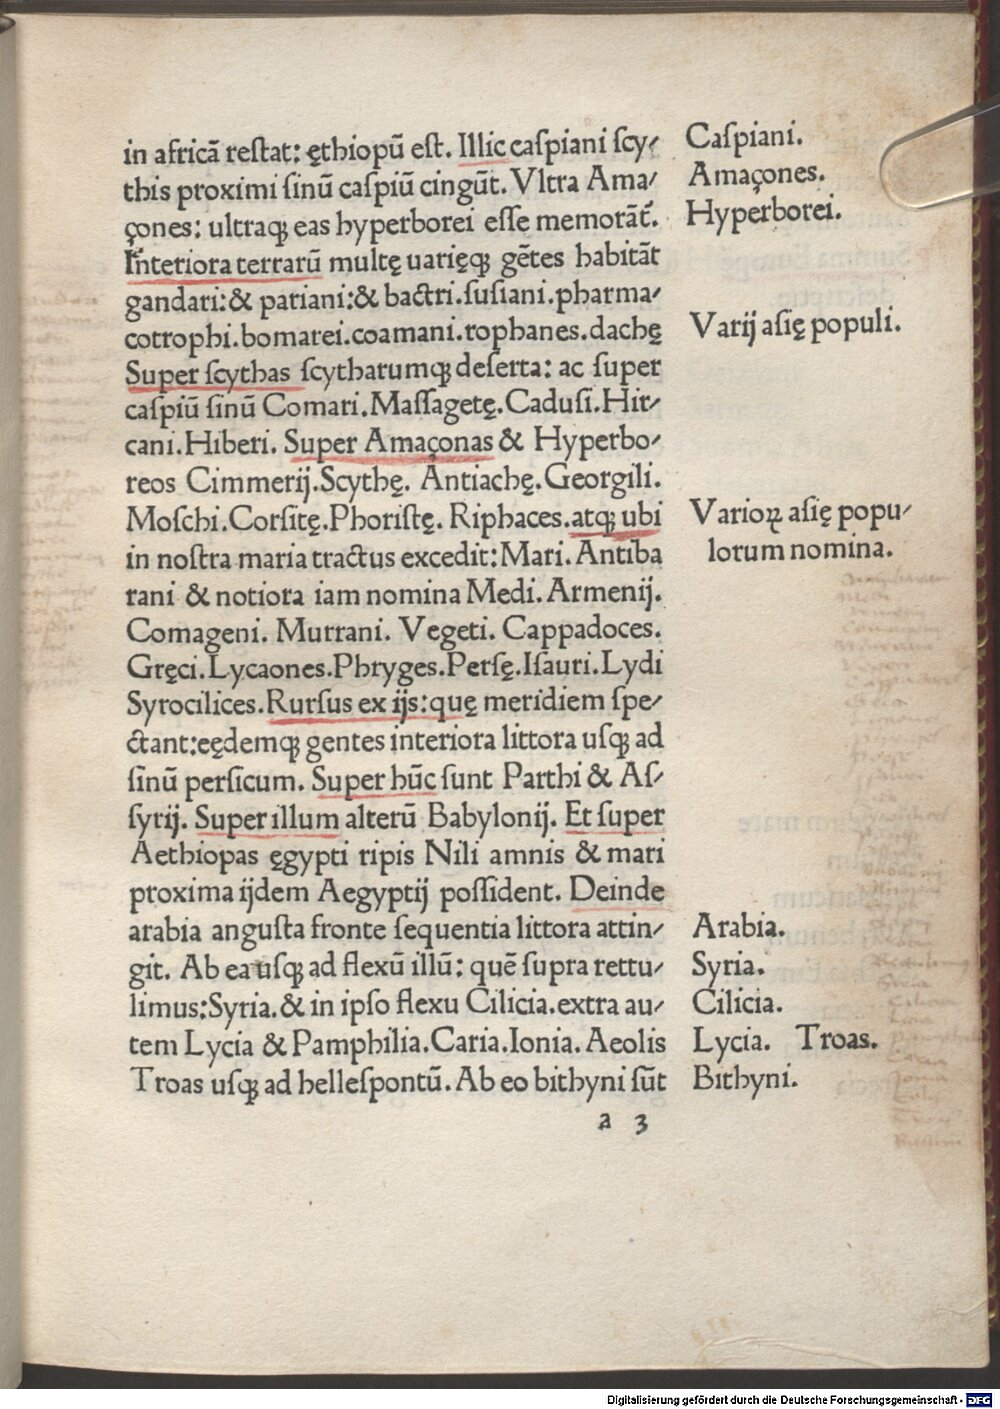 in africã reſtat: ęthiopũ eſt. Illic caſpiani ſcy⸗
this proximi ſinũ caſpiũ cingũt. Vltra Ama⸗
çones: ultraqꝫ eas hyperborei eſſe memorãt᷑.
Interiora terrarũ multę uarięqꝫ gẽtes habitãt
gandari:& pariani:& bactri.ſuſiani.pharma⸗
cotrophi.bomarei.coamani.rophanes.dachę
Super ſcythas ſcytharumqꝫ deſerta: ac ſuper
caſpiũ ſinũ Comari.Maſſagetę.Caduſi.Hir⸗
cani.Hiberi. Super Amaçonas & Hyperbo⸗
reos Cimmerij.Scythę. Antiachę.Georgili.
Moſchi.Corſitę.Phoriſtę. Riphaces.atqꝫ ubi
in noſtra maria tractus excedit:Mari. Antiba
rani & notiora iam nomina Medi. Armenij.
Comageni. Murrani. Vegeti. Cappadoces.
Gręci.Lycaones.Phryges.Perſę.Iſauri.Lydi
Syrocilices.Rurſus ex ijs:quę meridiem ſpe⸗
ctant:eędemqꝫ gentes interiora littora uſqꝫ ad
ſinũ perſicum. Super hũc ſunt Parthi & Aſ⸗
ſyrij. Super illum alterũ Babylonij. Et ſuper
Aethiopas ęgypti ripis Nili amnis & mari
proxima ijdem Aegyptij poſſident. Deinde
arabia anguſta fronte ſequentia littora attin⸗
git. Ab ea uſqꝫ ad flexũ illũ: quẽ ſupra rettu⸗
limus:Syria.& in ipſo flexu Cilicia.extra au⸗
tem Lycia & Pamphilia.Caria.Ionia. Aeolis
Troas uſqꝫ ad helleſpontũ. Ab eo bithyni ſũt
a 3
Caſpiani.
Amaçones.
Hyperborei.
Varij aſię populi.
Varioꝝ aſię popu⸗
lorum nomina.
Arabia.
Syria.
Cilicia.
Lycia. Troas.
Bithyni.
Digitalisierung gefördert durch die Deutsche Forschungsgemeinschaft - DFG